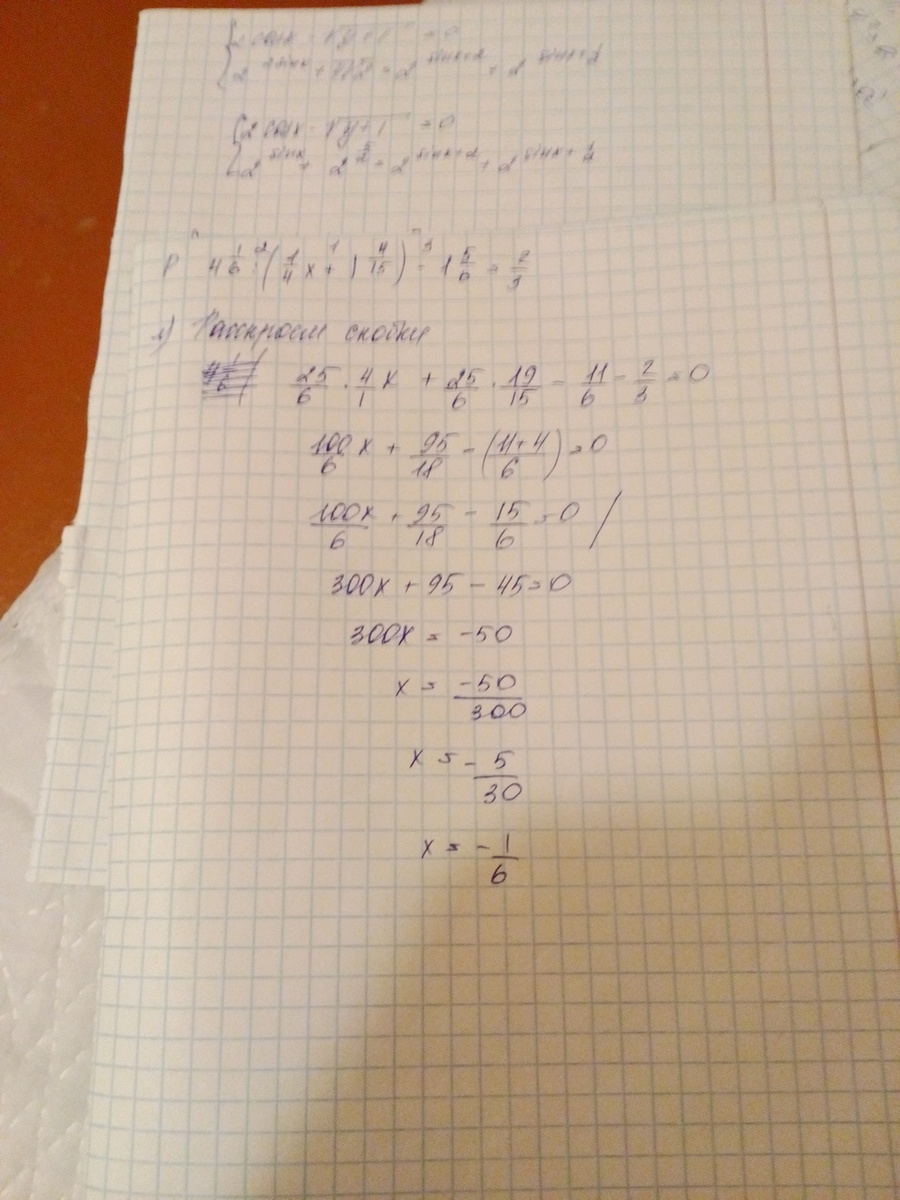 {2 cosx - √y+1 = 0
{2 cosx - √y+1 = 0
2^sinx + 2^(5/2) = 2^(sinx+2) + 2^(sinx+1/2)
4 1/6 (1/4 x + 1 4/15) - 1 5/6 = 2/3
1) Раскроем скобки
25/6 · 4/1 x + 25/6 · 19/15 - 11/6 - 2/3 = 0
100x/6 + 95/18 - (11+4/6) = 0
100x/6 + 95/18 - 15/6 = 0 /
300x + 95 - 45 = 0
300x = -50
x = -50/300
x = -5/30
x = -1/6